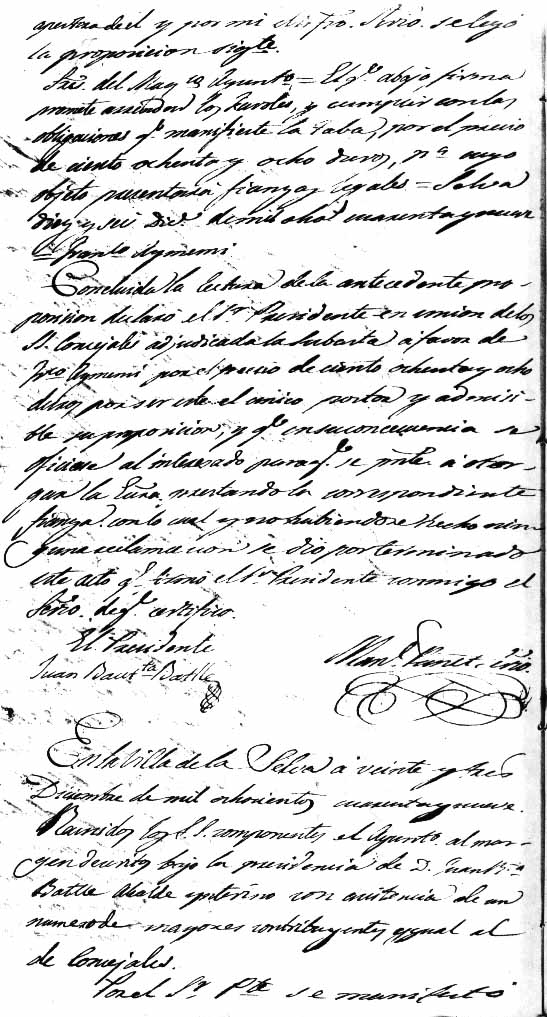 apertura de él y por mi el infro. Srio. se leyó
la proposicion sigte.
Sres. del Magco Ayunto. = El qe. abajo firma
promete los Faroles, y cumplir con las
obligaciones qe. manifieste la Taba, por el precio
de ciento ochenta y ocho duros, pa. cuyo
objeto presentará fianzas legales = Selva
diez y seis Dice. de mil ocho cuarenta y nueve
Franco. Aymemi
Concluida la lectura de la antecedente pro-
posicion declaró el Sr. Presidente en union de los
SS. Concejales adjudicada la Subasta á favor de
Franco Aymemi por el precio de ciento ochenta y ocho
duros por ser este el único postor y admisi-
ble su proposicion, y qe. en su consecuencia se
oficiase al interesado para qe. se pnte. á otor-
gar la Esra. prestando la correspondiente
fianza. con lo cual y no habiendose hecho nin-
guna reclamacion se dio por terminado
este acto qe. firmó el Sr. Presidente conmigo el
Srio. de qe. certifico.
El Presidente
Juan Bauta. Batlle
Manl. Srio.
En la Villa de la Selva á veinte y tres
Diciembre de mil ochocientos cuarenta y nueve.
Reunidos los S.S. componentes el Ayunto. al mar-
gen descritos bajo la presidencia de D. Juan Bta.
Batlle Alcalde ynterino con asistencia de un
numero de mayores contribuyentes ygual al
de Concejales.
Por el Sr. Pte. se manifestó